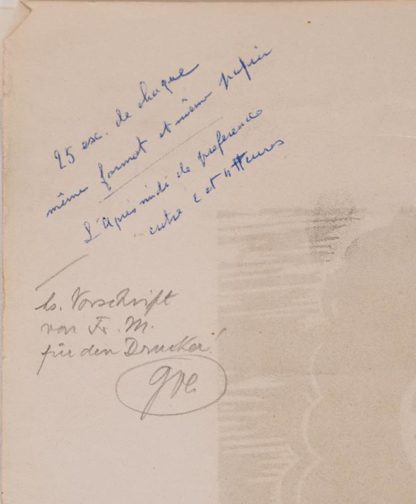 25 ex. de chaque
même format et même papier
L'après midi de préférence
entre 2 et 4 Heures
hs. Vorschrift
von Fr. M.
für den Drucker!